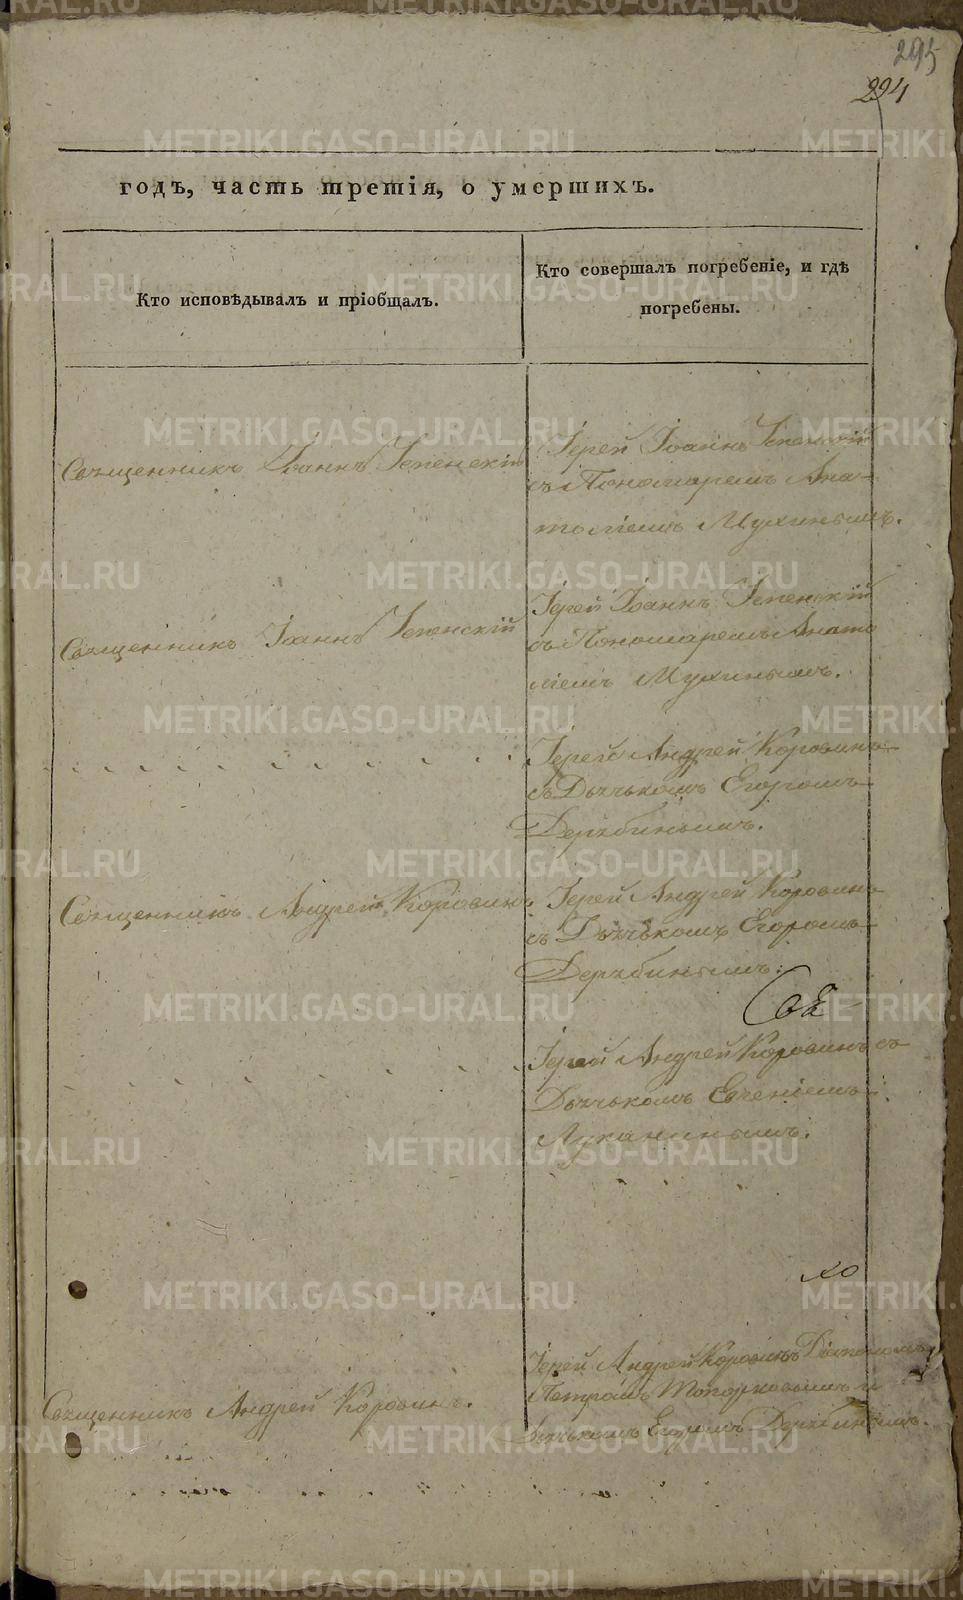 295
294
годъ, часть третія, о умершихъ.
Кто исповѣдывалъ и пріобщалъ.
Кто совершалъ погребеніе, и гдѣ
погребены.
Священникъ Іоаннъ
Іерей Іоаннъ
съ Пономаремъ Ана-
толіемъ Мухинымъ.
Священникъ Іоаннъ
Іерей Іоаннъ
съ Пономаремъ Анато
ліемъ Мухинымъ.
Іерей Андрей Коровинъ
съ Дьячькомъ Егоромъ
Дерябинымъ.
Священникъ Андрей Коровинъ
Іерей Андрей Коровинъ
съ Дьячькомъ Егоромъ
Дерябинымъ.
Іерей Андрей Коровинъ съ
Дьячькомъ Евгеніемъ
Луканинымъ.
Священникъ Андрей Коровинъ.
Іерей Андрей Коровинъ
Петромъ Топорковымъ и
Дьячькомъ Егоромъ Дерябинымъ.
METRIKI.GASO-URAL.RU